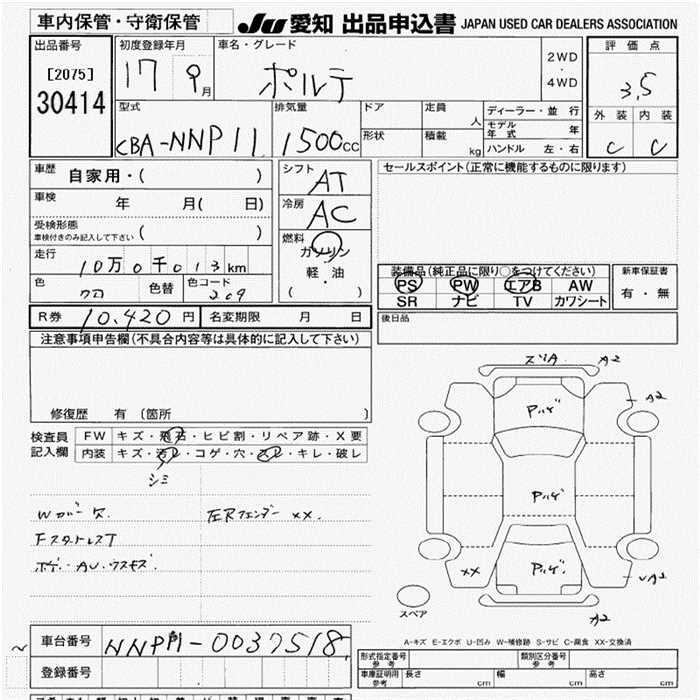 車内保管・守衛保管
JU 愛知 出品申込書 JAPAN USED CAR DEALERS ASSOCIATION
出品番号
[2075]
30414
初度登録年月
17 9月
車名・グレード
ポルテ
2WD
・
4WD
評価点
3.5
外装 内装
C C
型式
CBA-NNP11
排気量
1500cc
ドア
形状
定員 人
積載 kg
ディーラー・並行
モデル年式 年
ハンドル 左・右
車歴 自家用・( )
車検 年 月( 日)
受検形態
車検付きのみ記入して下さい ( )
走行 10万0千013km
色 クロ 色替 色コード 209
シフト
AT
冷房
AC
燃料
ガソリン
軽・油
( )
セールスポイント(正常に機能するものに限ります)
装備品(純正品に限り○をつけてください)
PS PW エアB AW
SR ナビ TV カワシート
新車保証書
有・無
R券 10,420円 名変期限 月 日
後日品
注意事項申告欄(不具合内容等は具体的に記入して下さい)
修復歴 有 (箇所 )
検査員記入欄
FW キズ・飛石・ヒビ割・リペア跡・X要
内装 キズ・汚レ・コゲ・穴・スレ・キレ・破レ
シミ
Wカバー欠
左Rフェンダー XX.
FスタットレスT
ボデー AUウスキズ
ズリA A2
A2
Pハゲ
Pハゲ
Pハゲ
XX
A2
スペア
A-キズ E-エクボ U-凹み W-補修跡 S-サビ C-腐食 XX-交換済
車台番号 NNP11-0037518
登録番号
型式指定番号
参考
類別区分番号
参考
車庫証明用
参考
長さ cm 幅 cm 高さ cm